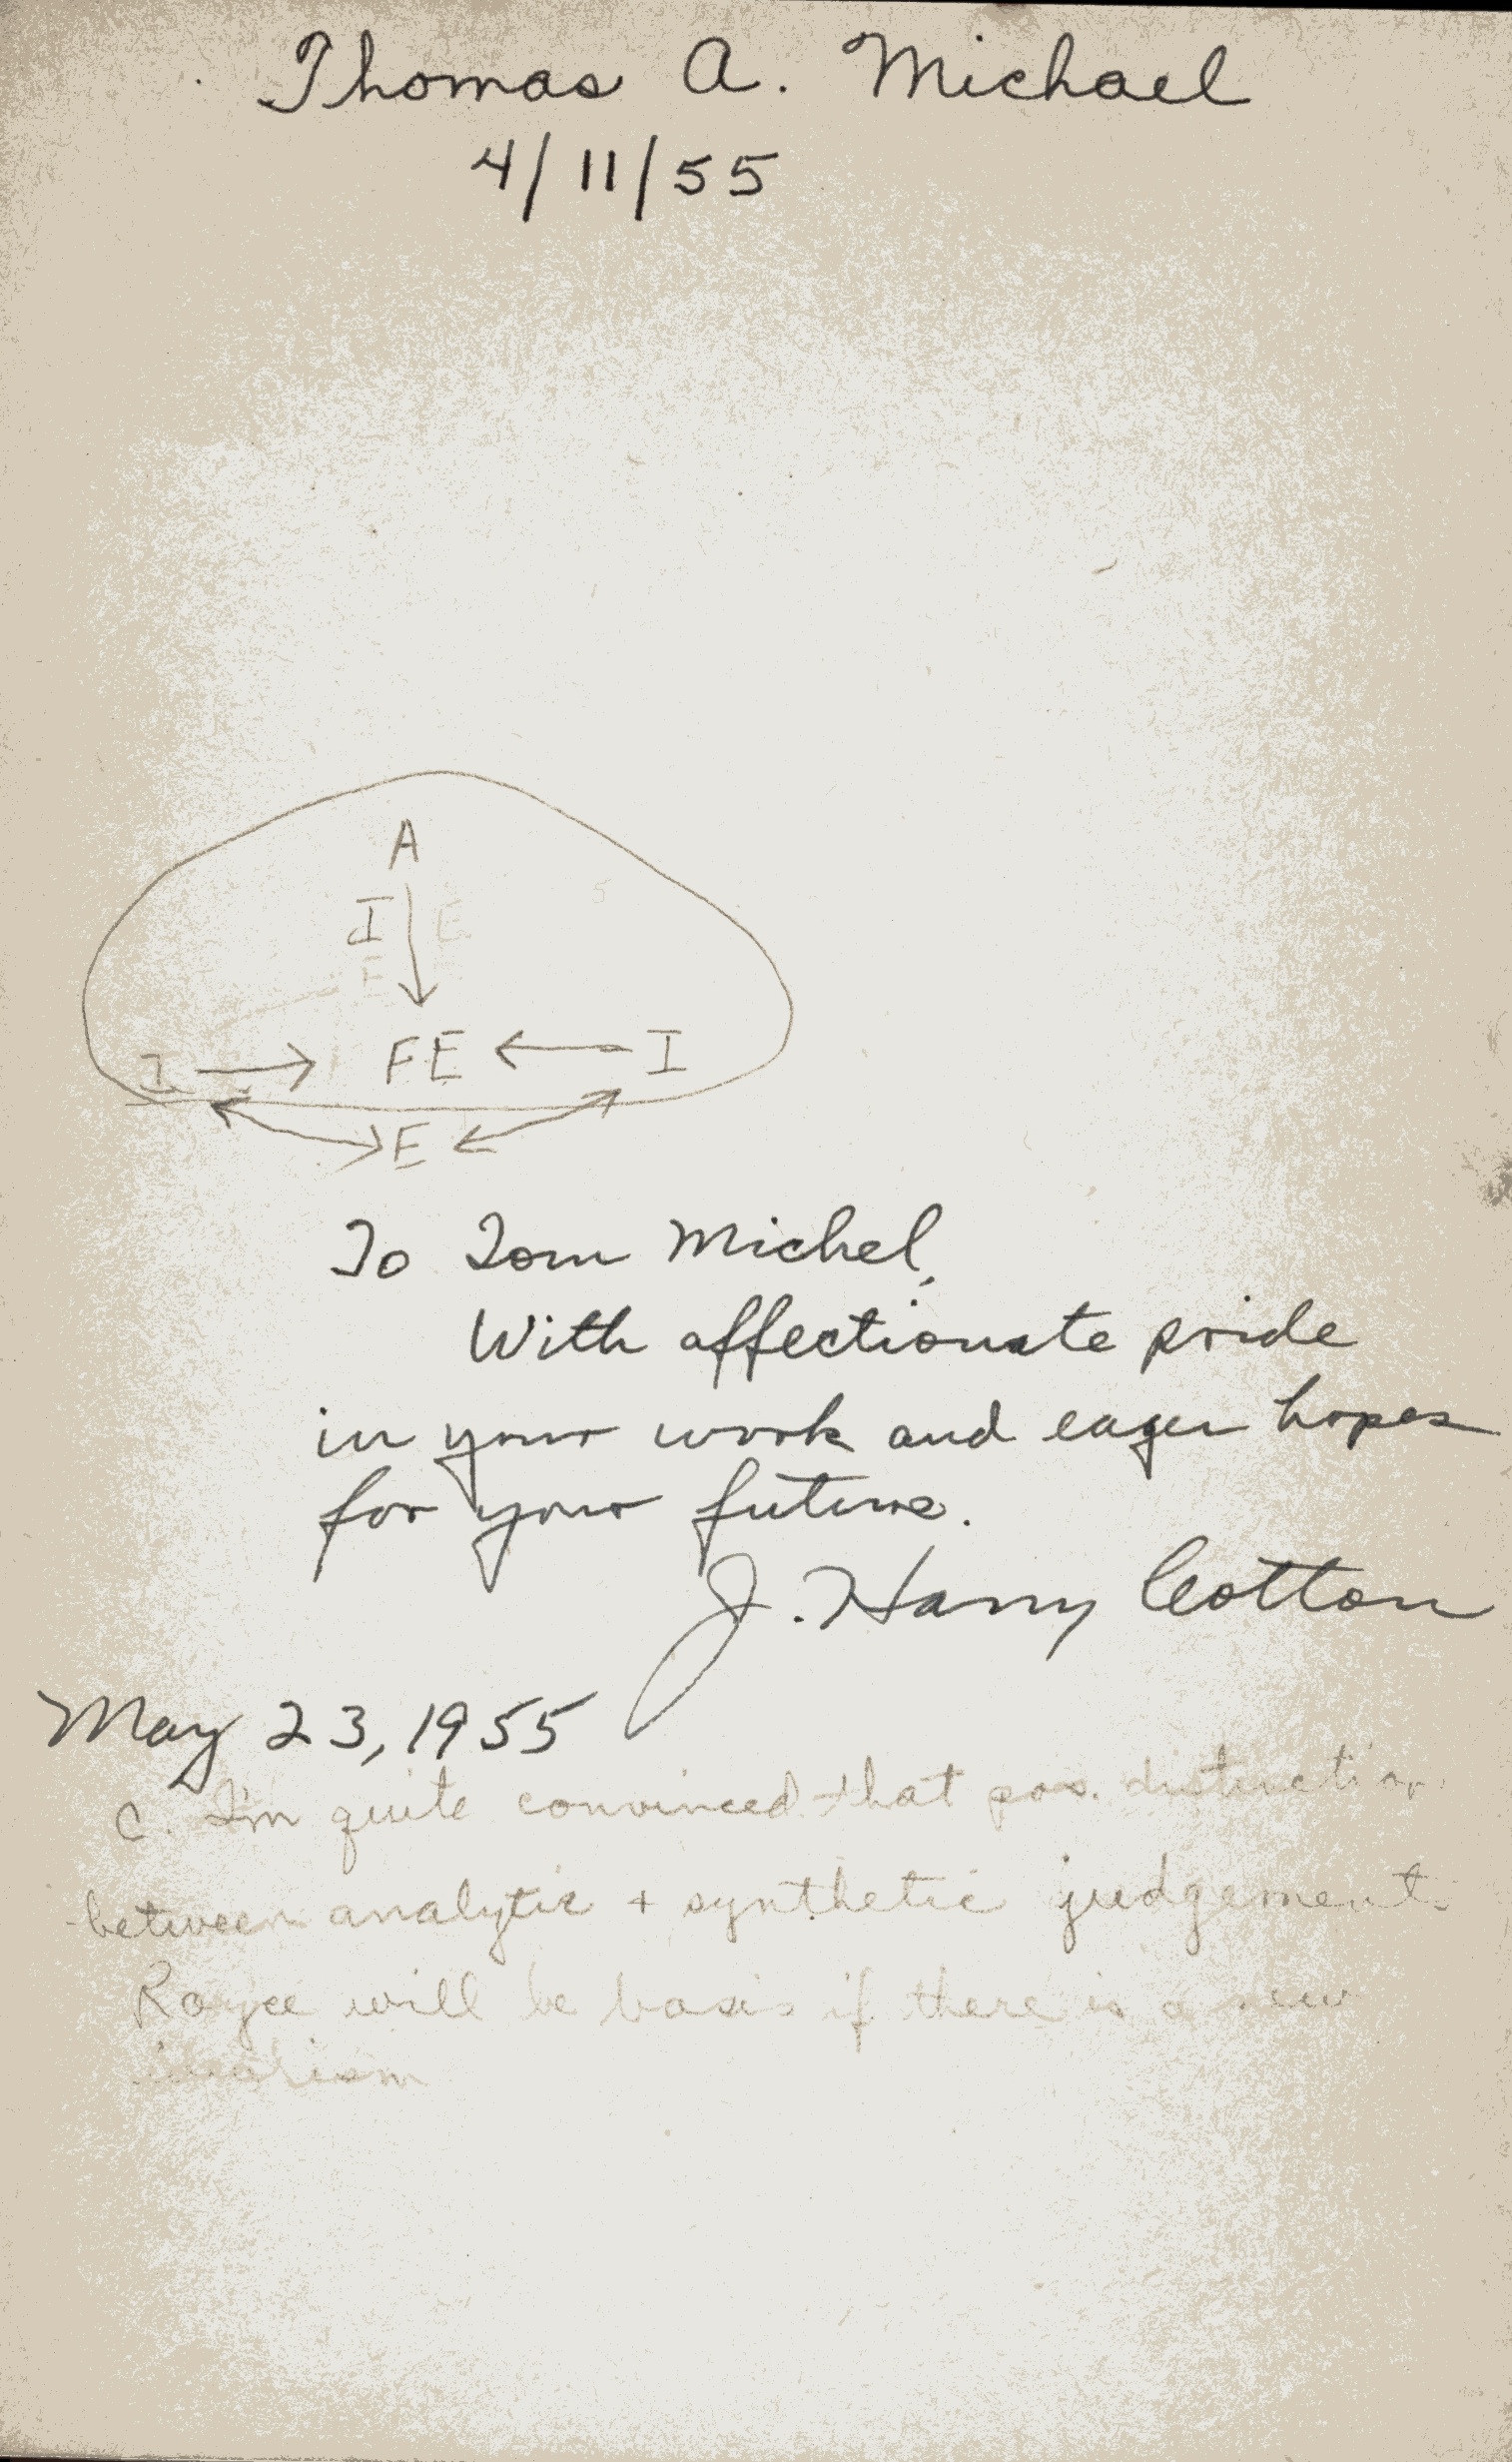 Thomas A. Michael
4/11/55
A
I E
E
I FE I
E
To Tom Michel,
With affectionate pride
in your work and eager hopes
for your future.
J. Harry Cotton
May 23, 1955
C. I'm quite convinced that pos. distinction
between analytic + synthetic judgement.
Royce will be basis if there is a new
idealism